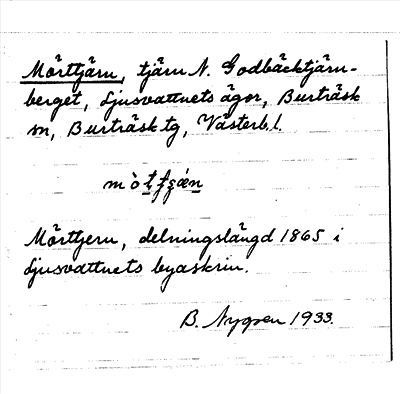 Mörttjärn, tjärn N. Godbäcktjärn-
berget, Ljusvattnets ägor, Burträsk
sn, Burträsk tg, Västerb. l.
Mörttjern, delningslängd 1865 i
Ljusvattnets byaskrin.
B. Nygren 1933.